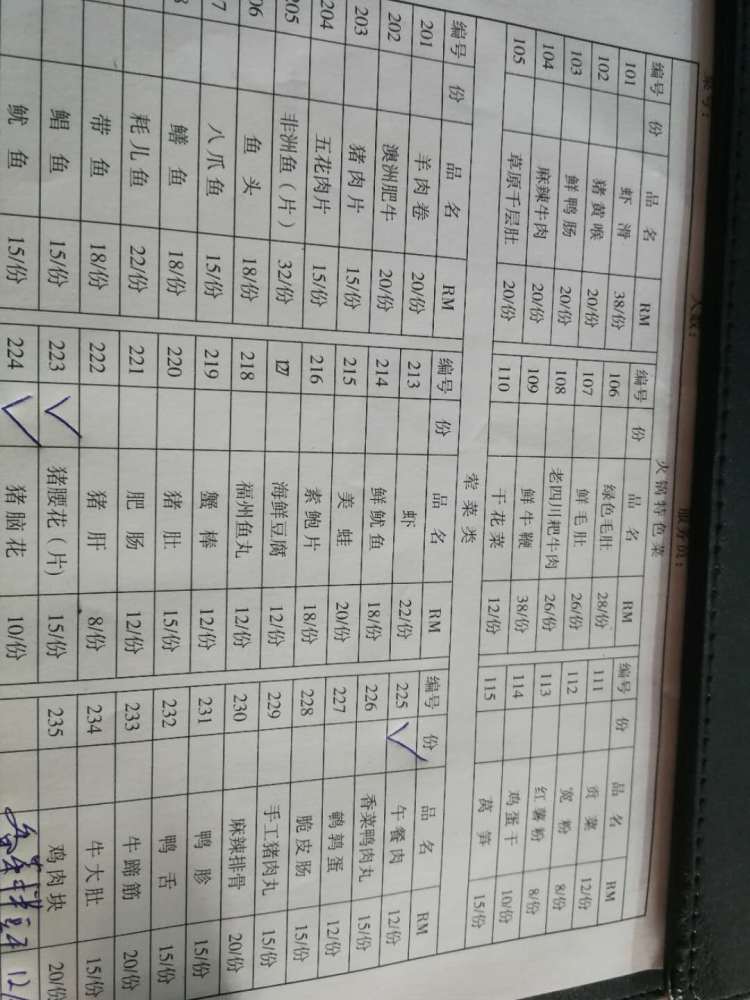 桌号： 人数： 服务员：
火锅特色菜
编号 份 品名 RM 编号 份 品名 RM 编号 份 品名 RM
101 虾滑 38/份 106 绿色毛肚 28/份 111 贡菜 12/份
102 猪黄喉 20/份 107 鲜毛肚 26/份 112 宽粉 8/份
103 鲜鸭肠 20/份 108 老四川耙牛肉 26/份 113 红薯粉 8/份
104 麻辣牛肉 20/份 109 鲜牛鞭 38/份 114 鸡蛋干 10/份
105 草原千层肚 20/份 110 干花菜 12/份 115 莴笋 15/份
荤菜类
编号 份 品名 RM 编号 份 品名 RM 编号 份 品名 RM
201 羊肉卷 20/份 213 虾 22/份 225 ✓ 午餐肉 12/份
202 澳洲肥牛 20/份 214 鲜鱿鱼 18/份 226 香菜鸭肉丸 15/份
203 猪肉片 15/份 215 美蛙 20/份 227 鹌鹑蛋 12/份
204 五花肉片 15/份 216 素鲍片 18/份 228 脆皮肠 15/份
205 非洲鱼（片） 32/份 17 海鲜豆腐 12/份 229 手工猪肉丸 15/份
06 鱼头 18/份 218 福州鱼丸 12/份 230 麻辣排骨 20/份
7 八爪鱼 15/份 219 蟹棒 12/份 231 鸭胗 15/份
鳝鱼 18/份 220 猪肚 15/份 232 鸭舌 15/份
耗儿鱼 22/份 221 肥肠 12/份 233 牛蹄筋 20/份
带鱼 18/份 222 猪肝 8/份 234 牛大肚 15/份
鲳鱼 15/份 223 ✓ 猪腰花（片） 15/份 235 鸡肉块 20/份
鱿鱼 15/份 224 ✓ 猪脑花 10/份 12/